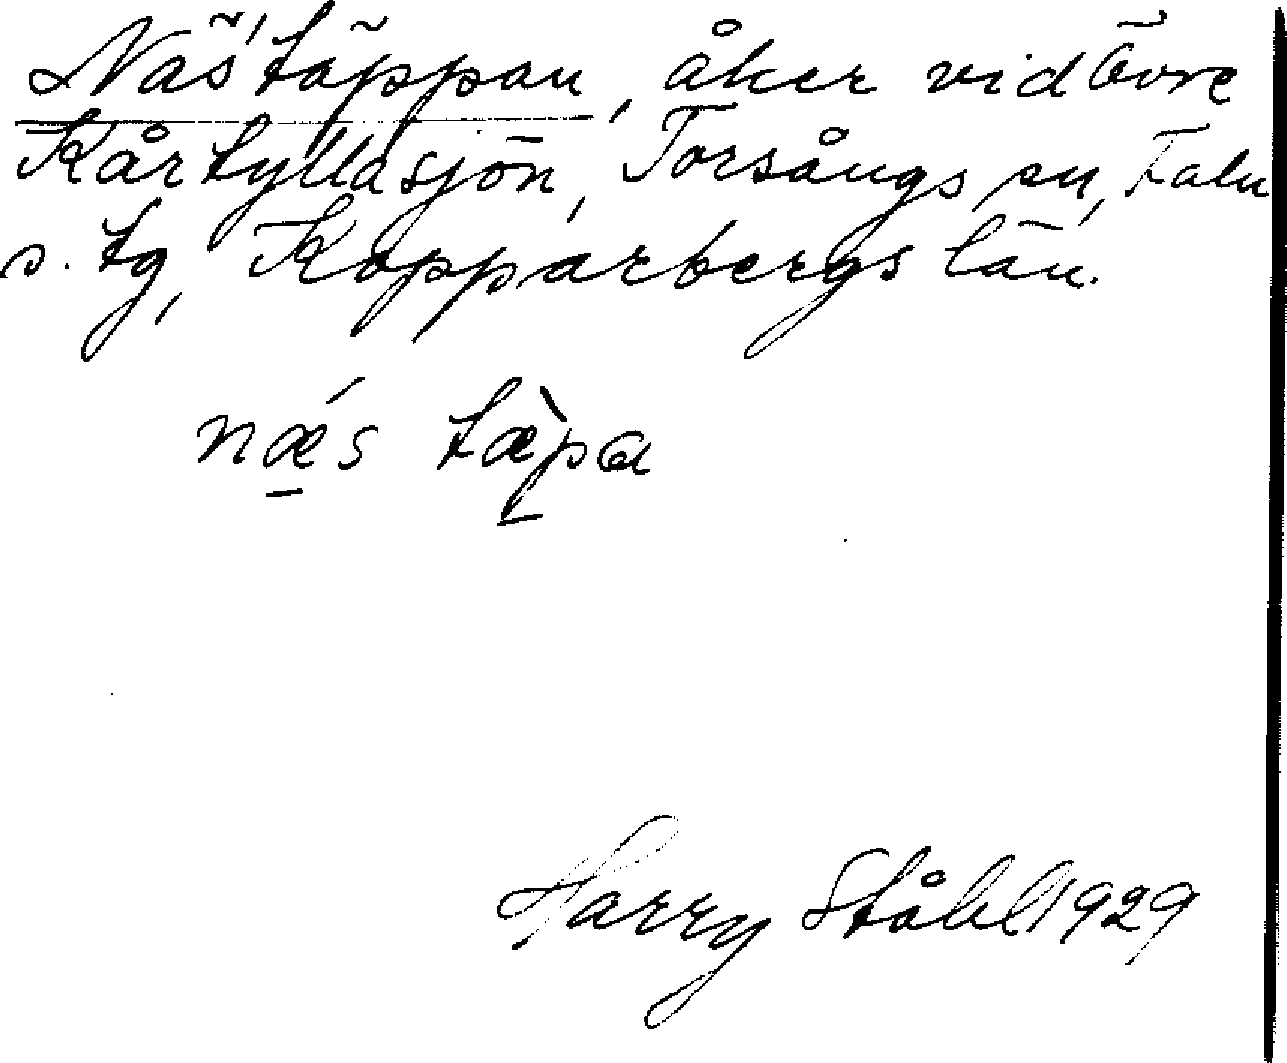 Näs'täppan, åker vid Övre
Kårtyllasjön, Torsångs sn, Falu
s. tg, Kopparbergs län.
nǽ̱s tæ̀p̱a
Harry Ståhl 1929